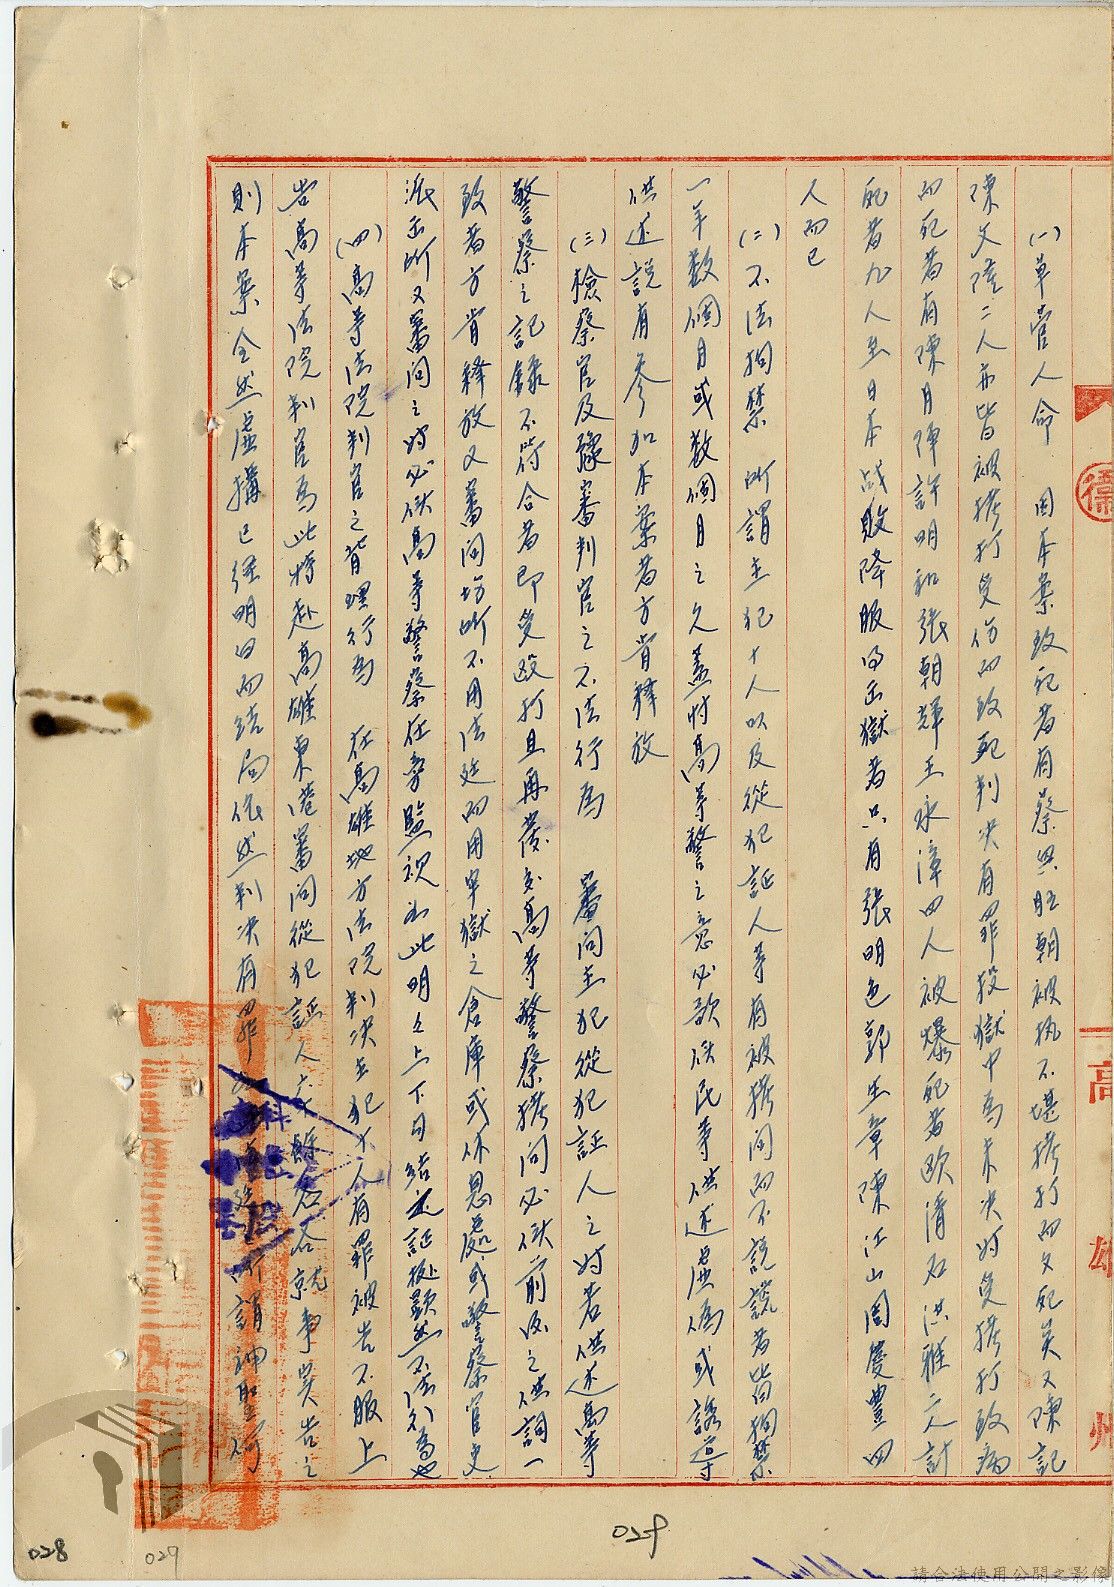 (一)草菅人命 因本案致死者有蔡興旺朝被执不堪拷打而又死矣又陳記
陳文陸二人亦皆被拷打受伤而致死判决有罪投獄中為未决时受拷打致病
而死者有陳月陣許明和張朝輝王永漳四人被爆死者欧清石洪雅二人計
死者九人至日本战敗降服得出獄者只有張明色郭生章陳江山周慶豐四
人而已
(二)不法拘禁 所謂主犯十人以及從犯証人等有被拷问而不説謊者皆拘禁
一年数個月或数個月之久盖时高等警之意必欲供民等供述虛偽或誘导
供述説有参加本案者方肯釋放
(三)檢察官及豫審判官之不法行為 審问主犯從犯証人之时若供述與高等
警察之記録不符合者即受殴打且再發交高等警察拷问必供前後之供詞一
致者方肯釋放又審问场所不用法廷而用牢獄之倉庫或休息處或警察官吏
派出所又審问之时必供高等警察在旁監視
(四)高等法院判官之背理行為 在高雄地方法院判决主犯十人有罪被告不服上
告高等法院判官為此特赴高雄東港審问從犯証人六十餘名各就事实告之
則本案全然虛構已經明白而結局依然判决有罪 所謂神聖何
衞
高
雄
州
028
027
029
請合法使用公開之影像